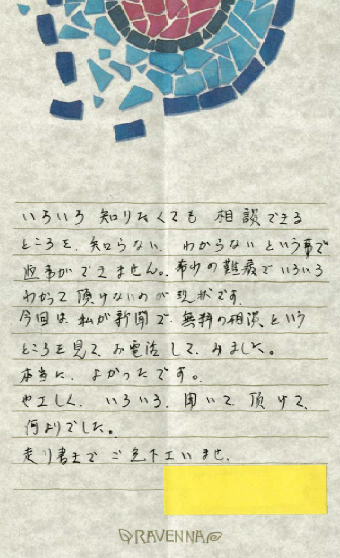 いろいろ 知りたくても 相談できる
ところを、知らない、わからない という事で
返事ができません。希少の難病で いろいろ
わかって頂けないのが 現状です。
今回は 私が新聞で、無料の相談という
ところを見て、お電話して、みました。
本当に、よかったです。
やさしく、いろいろ、聞いて、頂けて、
何よりでした。
走り書きで ご免下さいませ、
RAVENNA